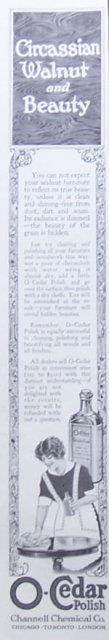 Circassian
Walnut
and
Beauty
You can not expect
your walnut furniture
to reflect its true beau-
ty, unless it is clean
and shining—free from
dust, dirt and scum.
Its radiance is dimmed
—the beauty of the
grain is hidden.
Just try cleaning and
polishing all your furniture
and woodwork this way:
wet a piece of cheesecloth
with water, wring it
almost dry, add a little
O-Cedar Polish and go
over the surface, then polish
with a dry cloth. You will
be astonished at the re-
sult—your furniture will
reveal hidden beauties.
Remember, O-Cedar
Polish is equally successful
in cleaning, polishing and
beautifying all woods and
all finishes.
All dealers sell O-Cedar
Polish in convenient sizes
with the
distinct understanding—if
you are not
delighted with
the results,
money will be
refunded with-
out a question.
O-Cedar
Polish
O-Cedar
Polish
Channell Chemical Co.
CHICAGO - TORONTO - LONDON